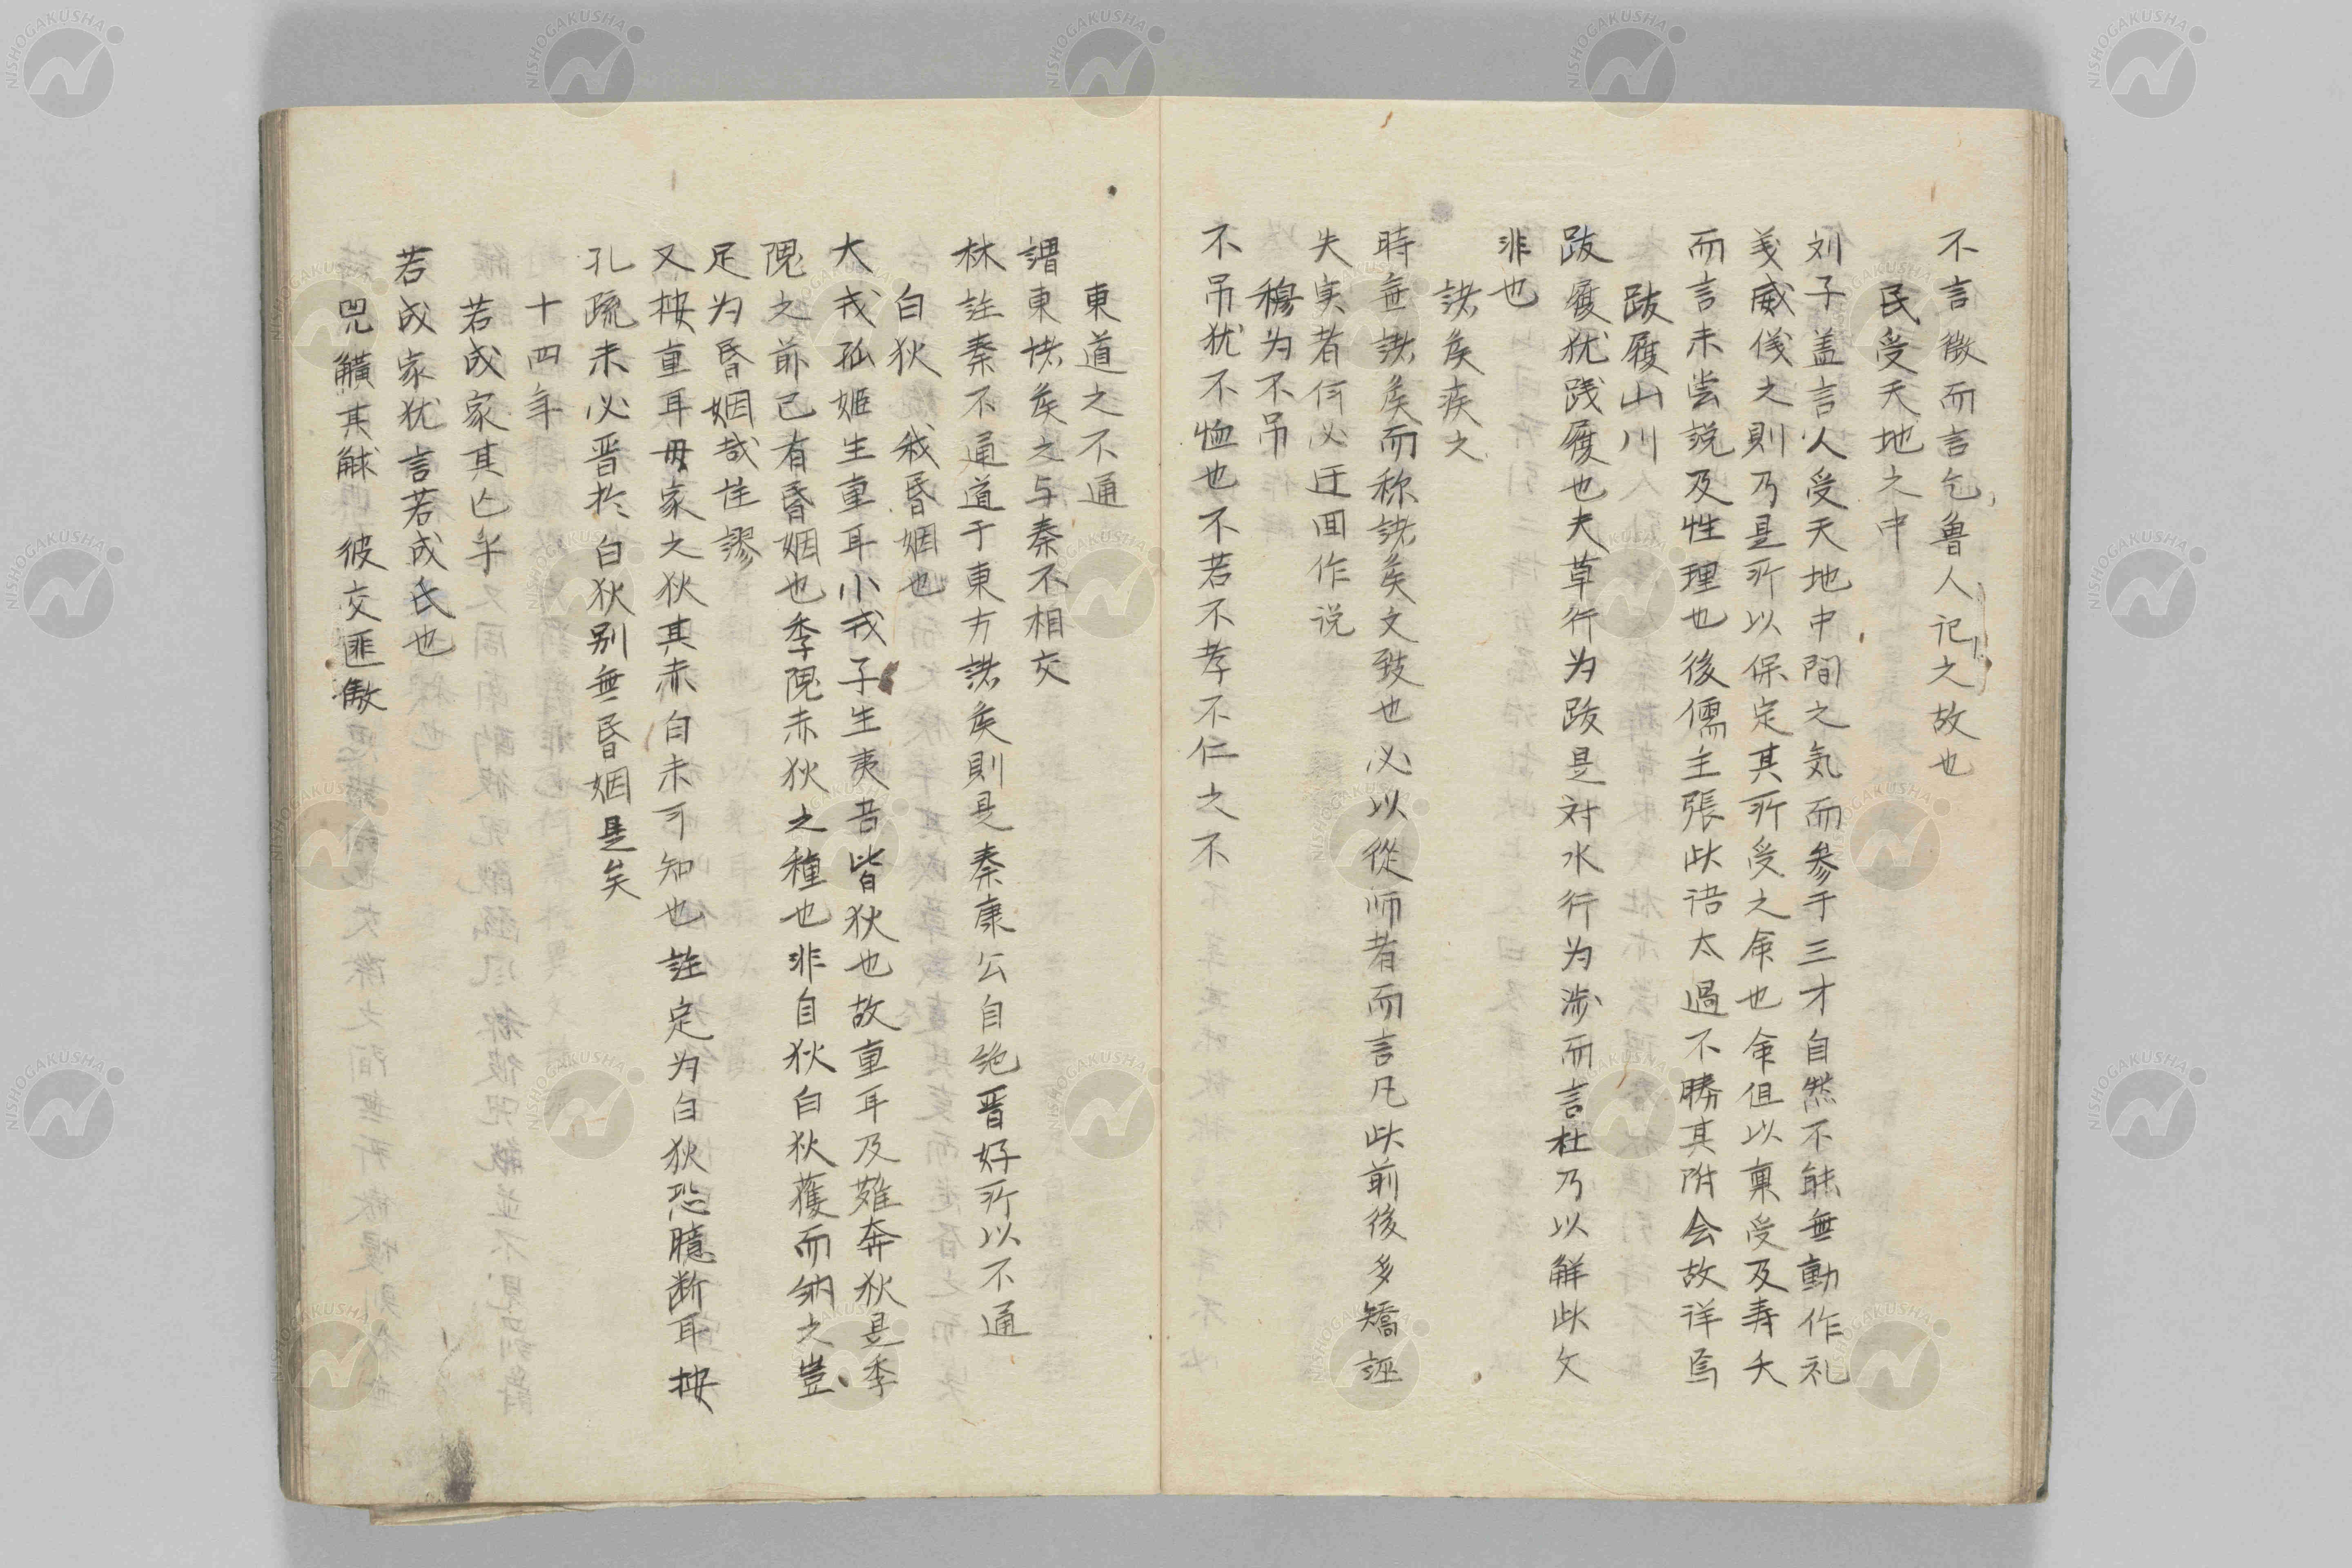 不言徴而言乞魯人記之故也
民受天地之中
刘子盖言人受天地中間之気而参于三才自然不能無動作礼
義威儀之則乃是所以保定其所受之命也命但以稟受及寿夭
而言未尝説及性理也後儒主張此语太過不勝其附会故详焉
跋履山川
跋履犹践履也夫草行为跋是对水行为渉而言杜乃以解此文
非也
諸矦疾之
時無諸矦而称諸矦文致也必以從师者而言凡此前後多矯誣
失实者何必迂回作说
穆为不吊
不吊犹不恤也不若不孝不仁之不
東道之不通
謂東諸矦之与秦不相交
林註秦不通道于東方諸矦則是秦康公自绝晋好所以不通
白狄 我昏姻也
大戎狐姬生重耳小戎子生夷吾皆狄也故重耳及难奔狄是季
隗之前已有昏姻也季隗赤狄之種也非自狄白狄獲而納之豈
足为昏姻哉註謬
又按重耳毋家之狄其赤白未可知也註定为白狄恐臆断耳按
孔疏未必晋於白狄别無昏姻是矣
十四年
若成家其亡乎
若成家犹言若成氏也
兕觵其觩 彼交匪傲